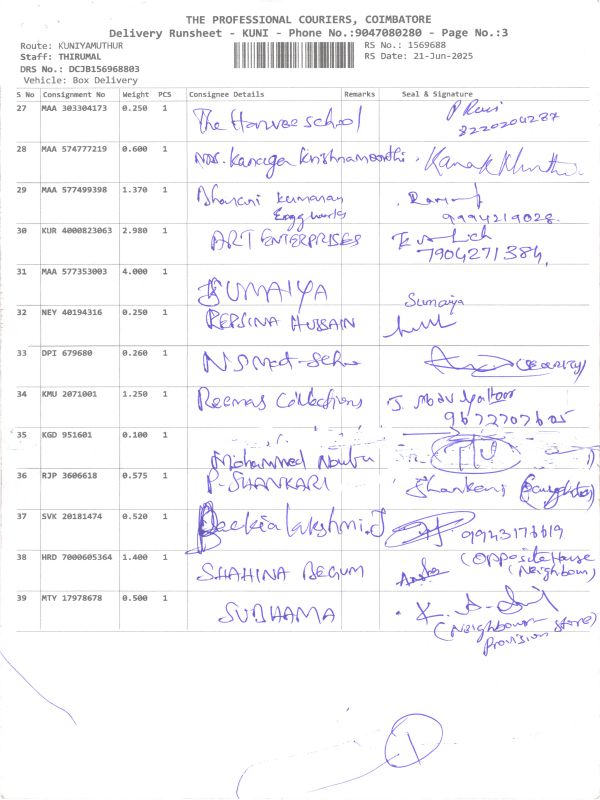 THE PROFESSIONAL COURIERS, COIMBATORE
Delivery Runsheet - KUNI - Phone No.:9047080280 - Page No.:3
Route: KUNIYAMUTHUR
RS No.: 1569688
Staff: THIRUMAL
RS Date: 21-Jun-2025
DRS No.: DCJB156968803
Vehicle: Box Delivery
S No Consignment No Weight PCS Consignee Details Remarks Seal & Signature
27 MAA 303304173 0.250 1 The Harvee School
8220204287
28 MAA 574777219 0.600 1 Kanaga Krishnamoorthi
29 MAA 577499398 1.370 1 Bhavani Kumaran
Engg works
9994219028
30 KUR 4000823063 2.980 1 ART ENTERPRISES
7904271384
31 MAA 577353003 4.000 1 SUMAIYA
Sumaiya
32 NEY 40194316 0.250 1 HUSSAIN
33 DPI 679680 0.260 1 (Security)
34 KMU 2071001 1.250 1 Reemas Collections
9672707605
35 KGD 951601 0.100 1 Mohammed
36 RJP 3606618 0.575 1 P. SHANKARI
(Daughter)
37 SVK 20181474 0.520 1 lakshmi.J
38 HRD 7000605364 1.400 1 SHAHINA BEGUM
(Opposite House
(Neighbour)
39 MTY 17978678 0.500 1 SUBHAMA
(Neighbour
Provision Store)